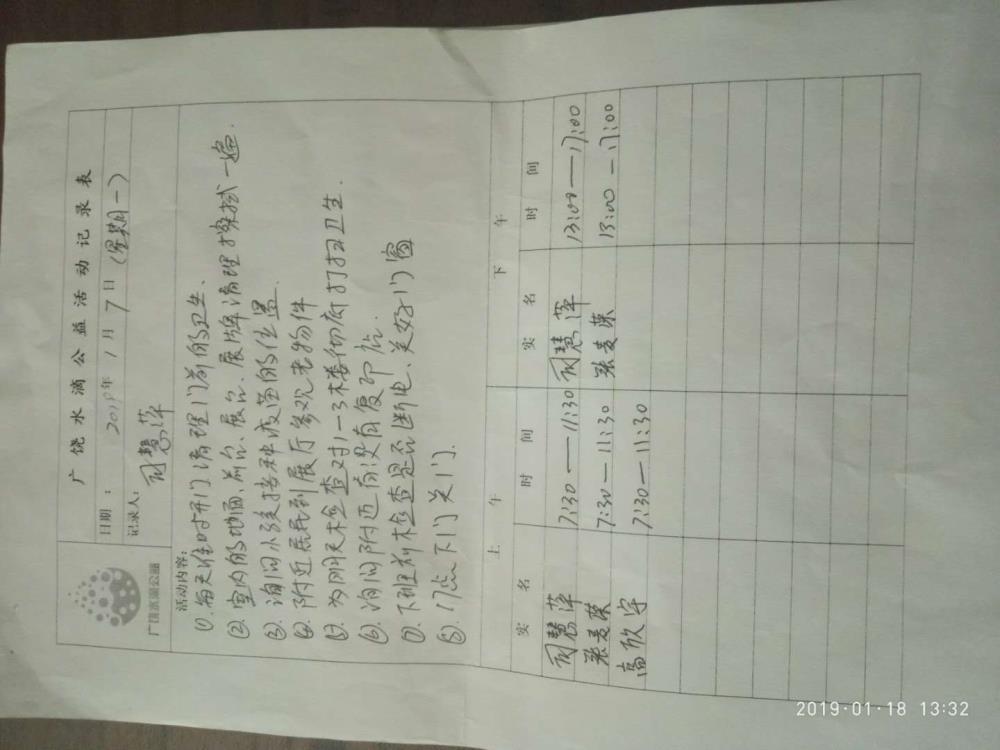 广饶水滴公益活动记录表
广饶水滴公益
日期： 2019年 1月 7日（星期一）
记录人：司慧萍
活动内容：
①.每天准时开门清理门前的卫生.
②.室内的地面、前台、展台、展牌清理擦拭一遍.
③.询问小孩接种疫苗的位置.
④.附近居民到展厅参观老物件
⑤.为明天检查对1—3楼彻底打扫卫生.
⑥.询问附近有没有复印店.
⑦.下班前检查是否断电、关好门窗
⑧.17点下门关门.
上 午 下 午
实 名 时 间 实 名 时 间
司慧萍 7:30—11:30 司慧萍 13:00—17:00
张美荣 7:30—11:30 张美荣 13:00—17:00
高欣宇 7:30—11:30
2019·01·18 13:32